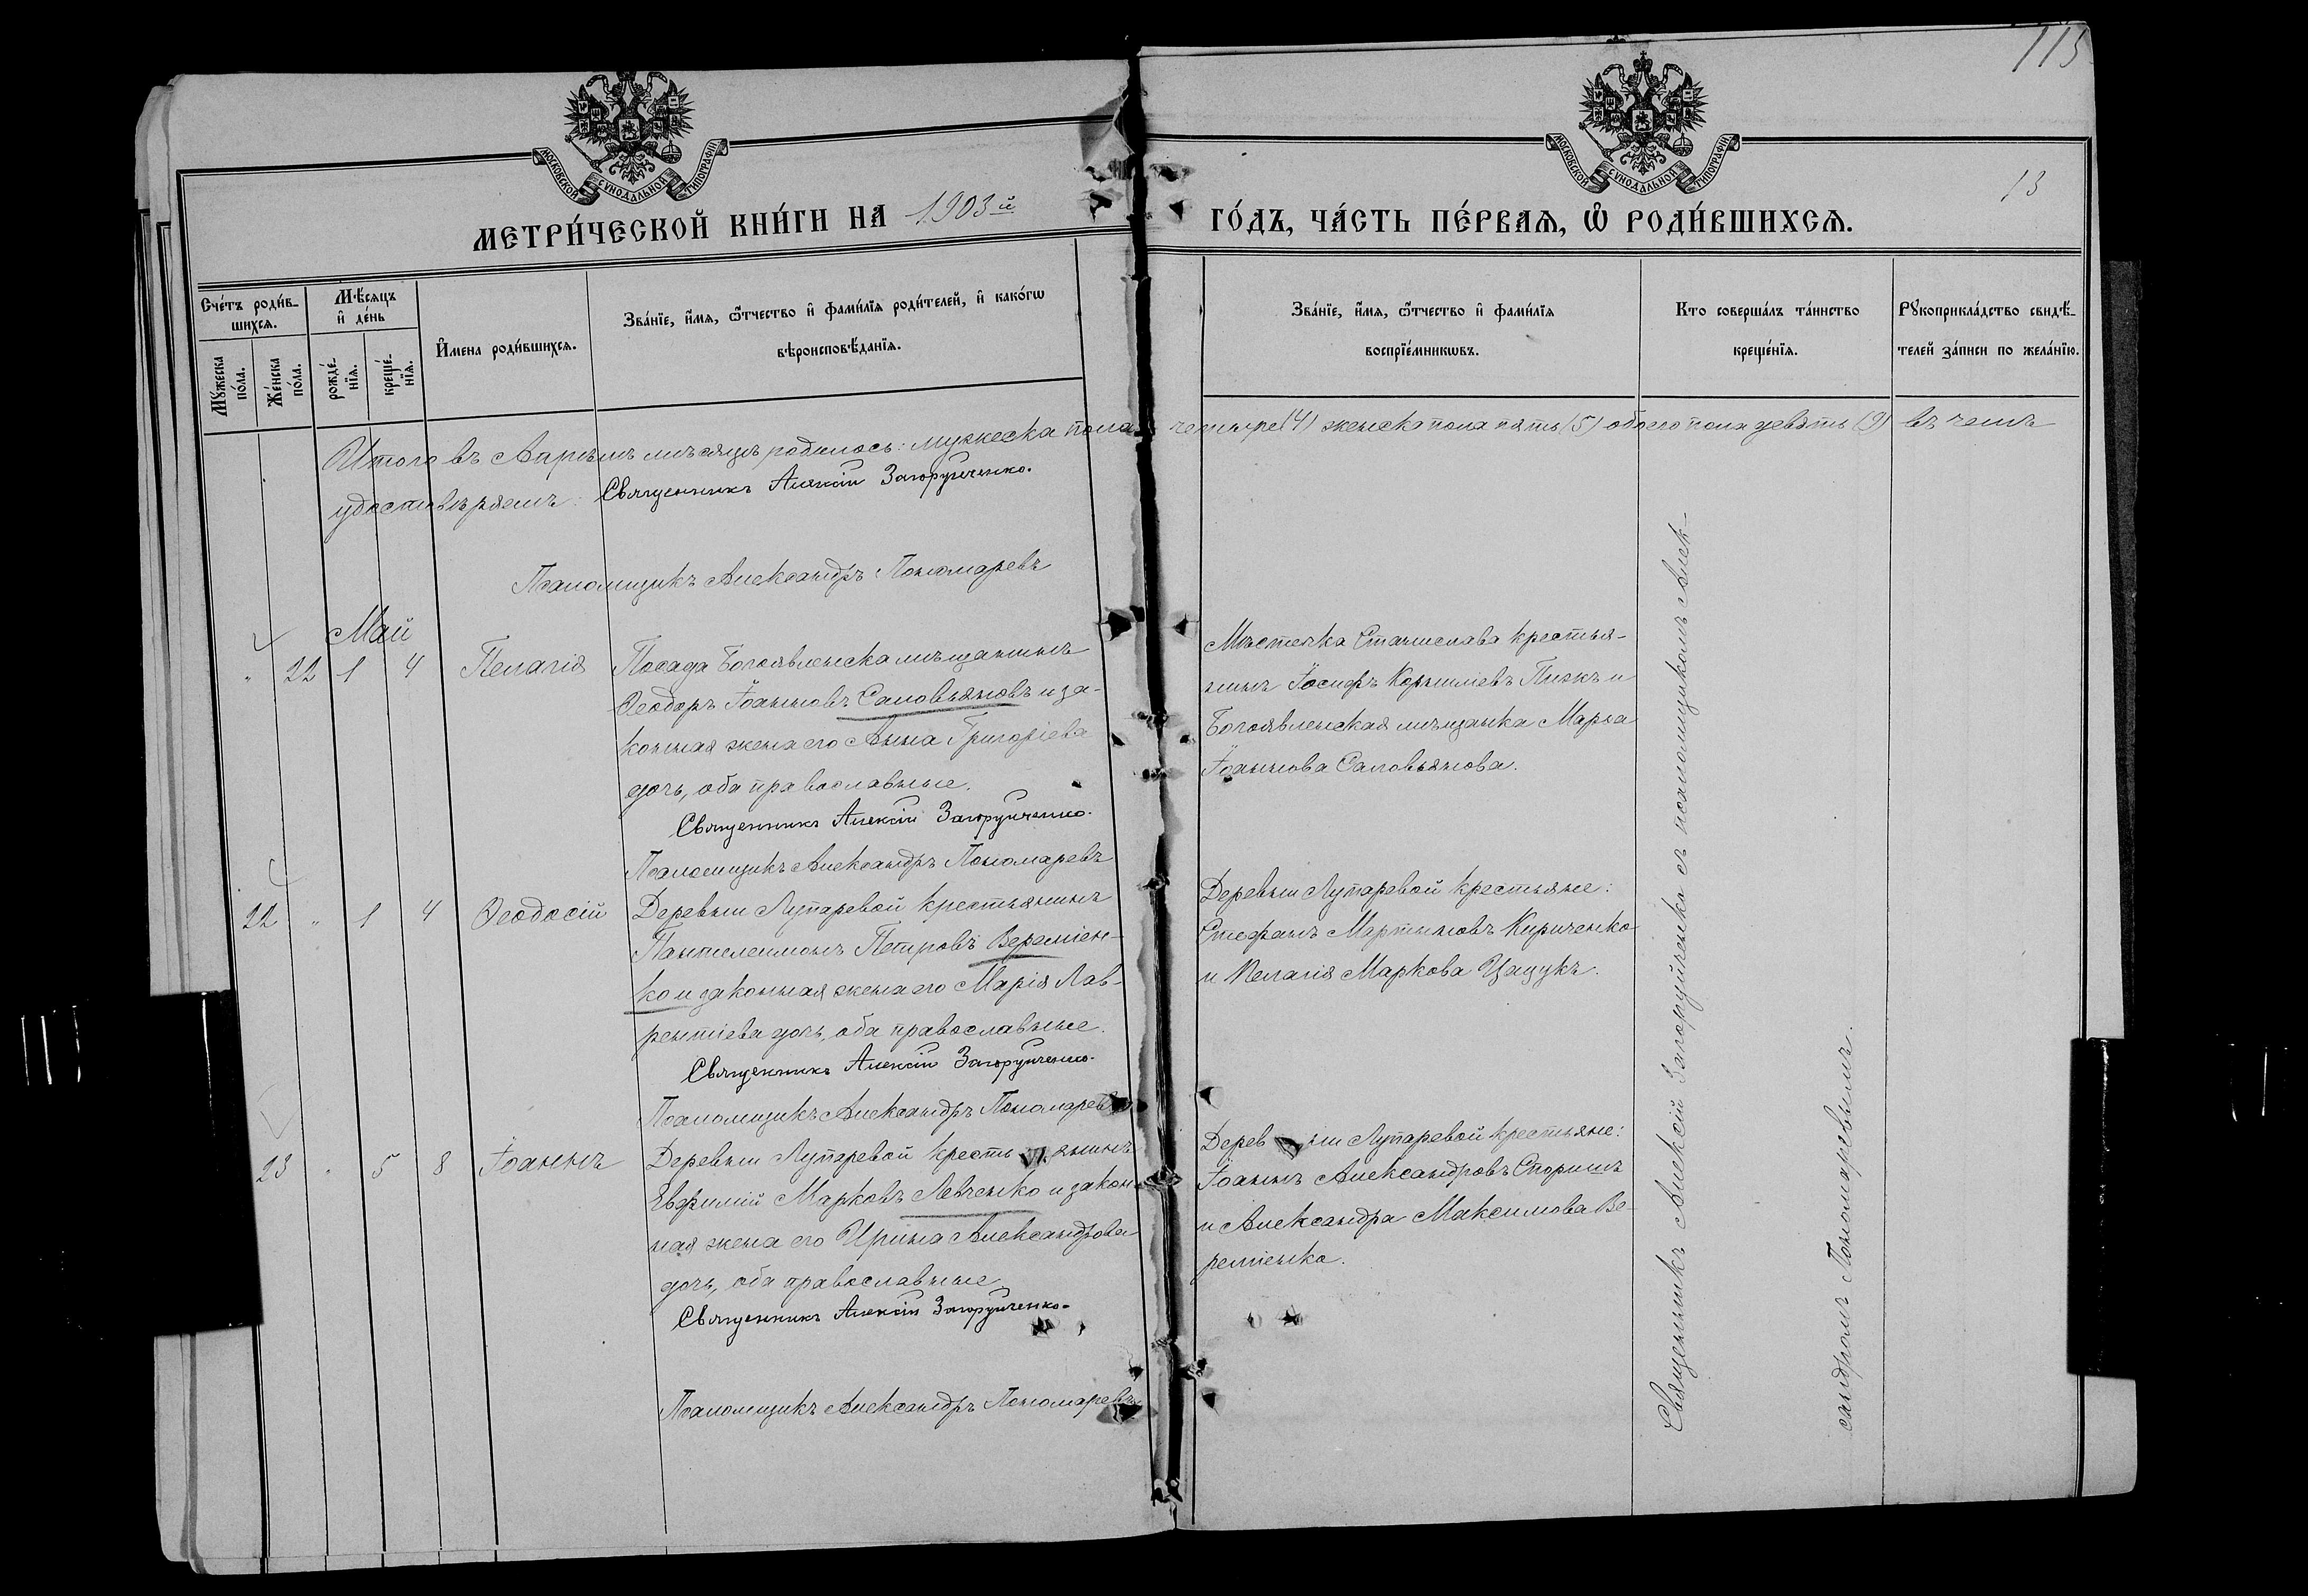 115
МОСКОВСКОЙ СѴНОДАЛЬНОЙ ТИПОГРАФІИ
МОСКОВСКОЙ СѴНОДАЛЬНОЙ ТИПОГРАФІИ
13
МЕТРИ́ЧЕСКОЙ КНИ́ГИ НА 1903й ГО́ДЪ, ЧА́СТЬ ПЕ́РВАЯ, Ѡ҆ РОДИ́ВШИХСЯ.
Сче́тъ роди́в-
шихся.
Мꙋ́жеска
по́ла.
Же́нска
по́ла.
Мѣ́сяцъ
и҆ де́нь
рожде́-
нїя.
креще́-
нїя.
И҆́мена роди́вшихся.
Зва́нїе, и҆́мя, ѻ҆́тчество и҆ фами́лїя роди́телей, и҆ како́гѡ
вѣроисповѣ́данїя.
Зва́нїе, и҆́мя, ѻ҆́тчество и҆ фами́лїя
воспрїе́мникѡвъ.
Кто соверша́лъ та́инство
креще́нїя.
Рꙋкоприкла́дство свидѣ́-
телей за́писи по жела́нїю.
Итого въ Апрѣлѣ мѣсяцѣ родилось: мужеска пола четыре (4) женска пола пять (5) обоего пола девять (9) въ чемъ
удостовѣряемъ: Священникъ Алексій Загоруйченко.
Псаломщикъ Александръ Пономаревъ
Май
" 22 1 4 Пелагія Посада Богоявленска мѣщанинъ
Ѳеодоръ Іоанновъ Саловьяновъ и за-
конная жена его Анна Григоріева
дочь, оба православные.
Священникъ Алексій Загоруйченко.
Псаломщикъ Александръ Пономаревъ
Мѣстечка Станислава крестья-
нинъ Іосифъ Корниліевъ Пизъ и
Богоявленская мѣщанка Марѳа
Іоаннова Саловьянова.
22 " 1 4 Ѳеодосій Деревни Лупаревой крестьянинъ
Пантелеимонъ Петровъ Веремѣен-
ко и законная жена его Марія Лав-
рентіева дочь, оба православные.
Священникъ Алексій Загоруйченко.
Псаломщикъ Александръ Пономаревъ
Деревни Лупаревой крестьяне:
Стефанъ Мартиновъ Кириченко
и Пелагія Маркова Цацукъ.
23 " 5 8 Іоаннъ Деревни Лупаревой крестьянинъ
Евфимій Марковъ Левченко и закон-
ная жена его Ирина Александрова
дочь, оба православные
Священникъ Алексій Загоруйченко.
Псаломщикъ Александръ Пономаревъ
Деревни Лупаревой крестьяне:
Іоаннъ Александровъ Споришъ
и Александра Максимова Ве-
ремѣенко.
Священникъ Алексій Загоруйченко съ псаломщикомъ Алек-
сандромъ Пономаревымъ.